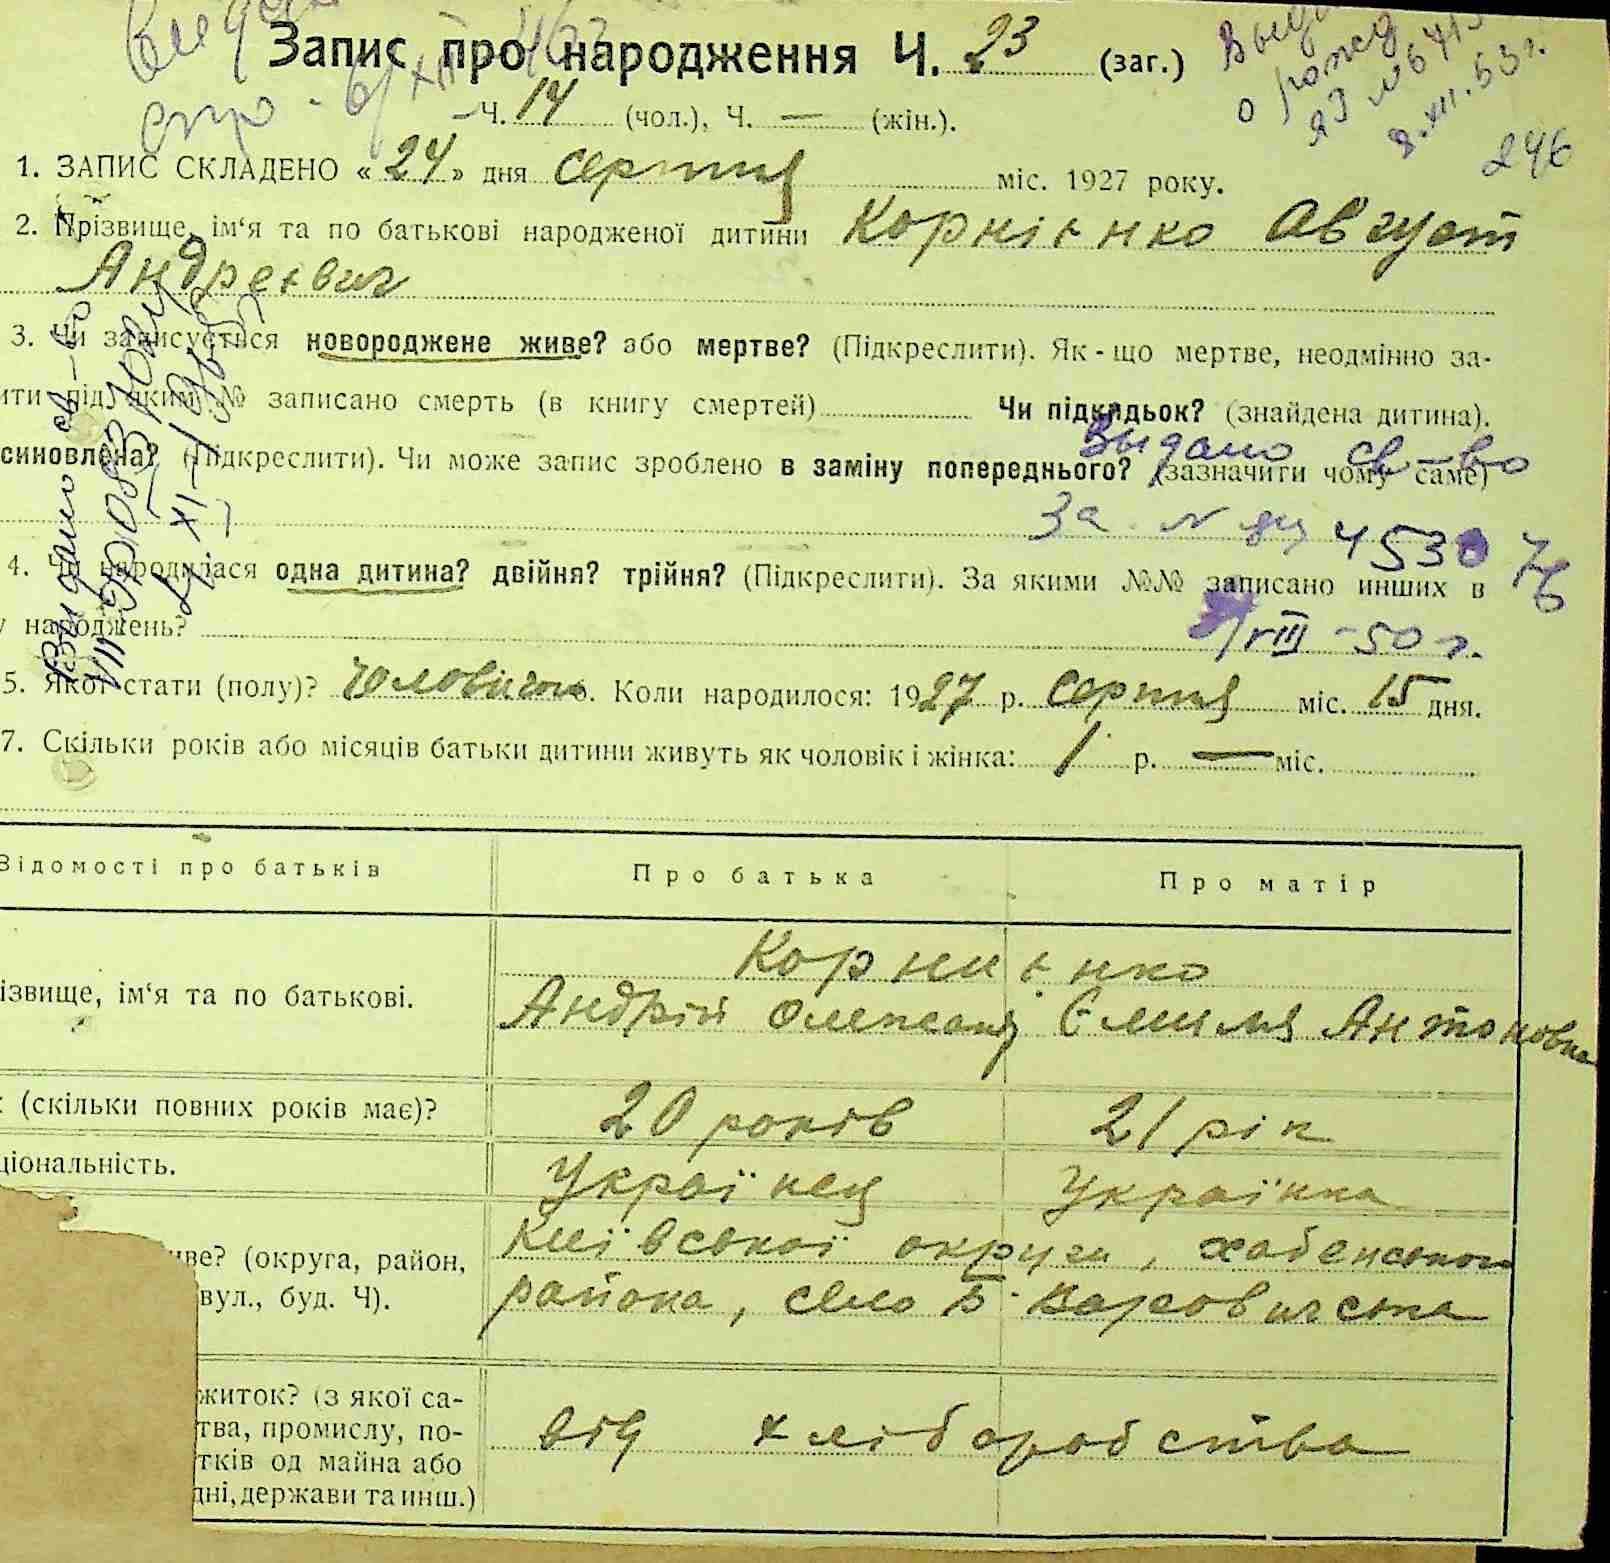 Запис про народження Ч. 23 (заг.)
Ч. 14 (чол.), Ч. — (жін.).
о рожд
8.XII.53 г.
246
1. ЗАПИС СКЛАДЕНО «24» дня серпня міс. 1927 року.
2. Прізвище, ім‘я та по батькові народженої дитини Корнієнко Август
Андреєвич
3. Чи записується новороджене живе? або мертве? (Підкреслити). Як-що мертве, неодмінно за-
ити під яким № записано смерть (в книгу смертей) Чи підкидьок? (знайдена дитина).
синовлена? (Підкреслити). Чи може запис зроблено в заміну попереднього? (зазначити чому саме)
Выдано св-во
За N 453076
4. Чи народилася одна дитина? двійня? трійня? (Підкреслити). За якими №№ записано инших в
у народжень?
VIII-50 г.
5. Якої стати (полу)? Чоловічої. Коли народилося: 1927 р. серпня міс. 15 дня.
7. Скільки років або місяців батьки дитини живуть як чоловік і жінка: 1 р. — міс.
Відомості про батьків Про батька Про матір
ізвище, ім‘я та по батькові. Корниенко
Андрій Олександ Ємилия Антоновна
(скільки повних років має)? 20 років 21 рік
ціональність. Українец Українка
иве? (округа, район, Київської округи, хабенского
вул., буд. Ч). района, село Б. Варовичська
житок? (з якої са-
тва, промислу, по- від хліборобства
тків од майна або
дні, держави та инш.)
Видано св-во